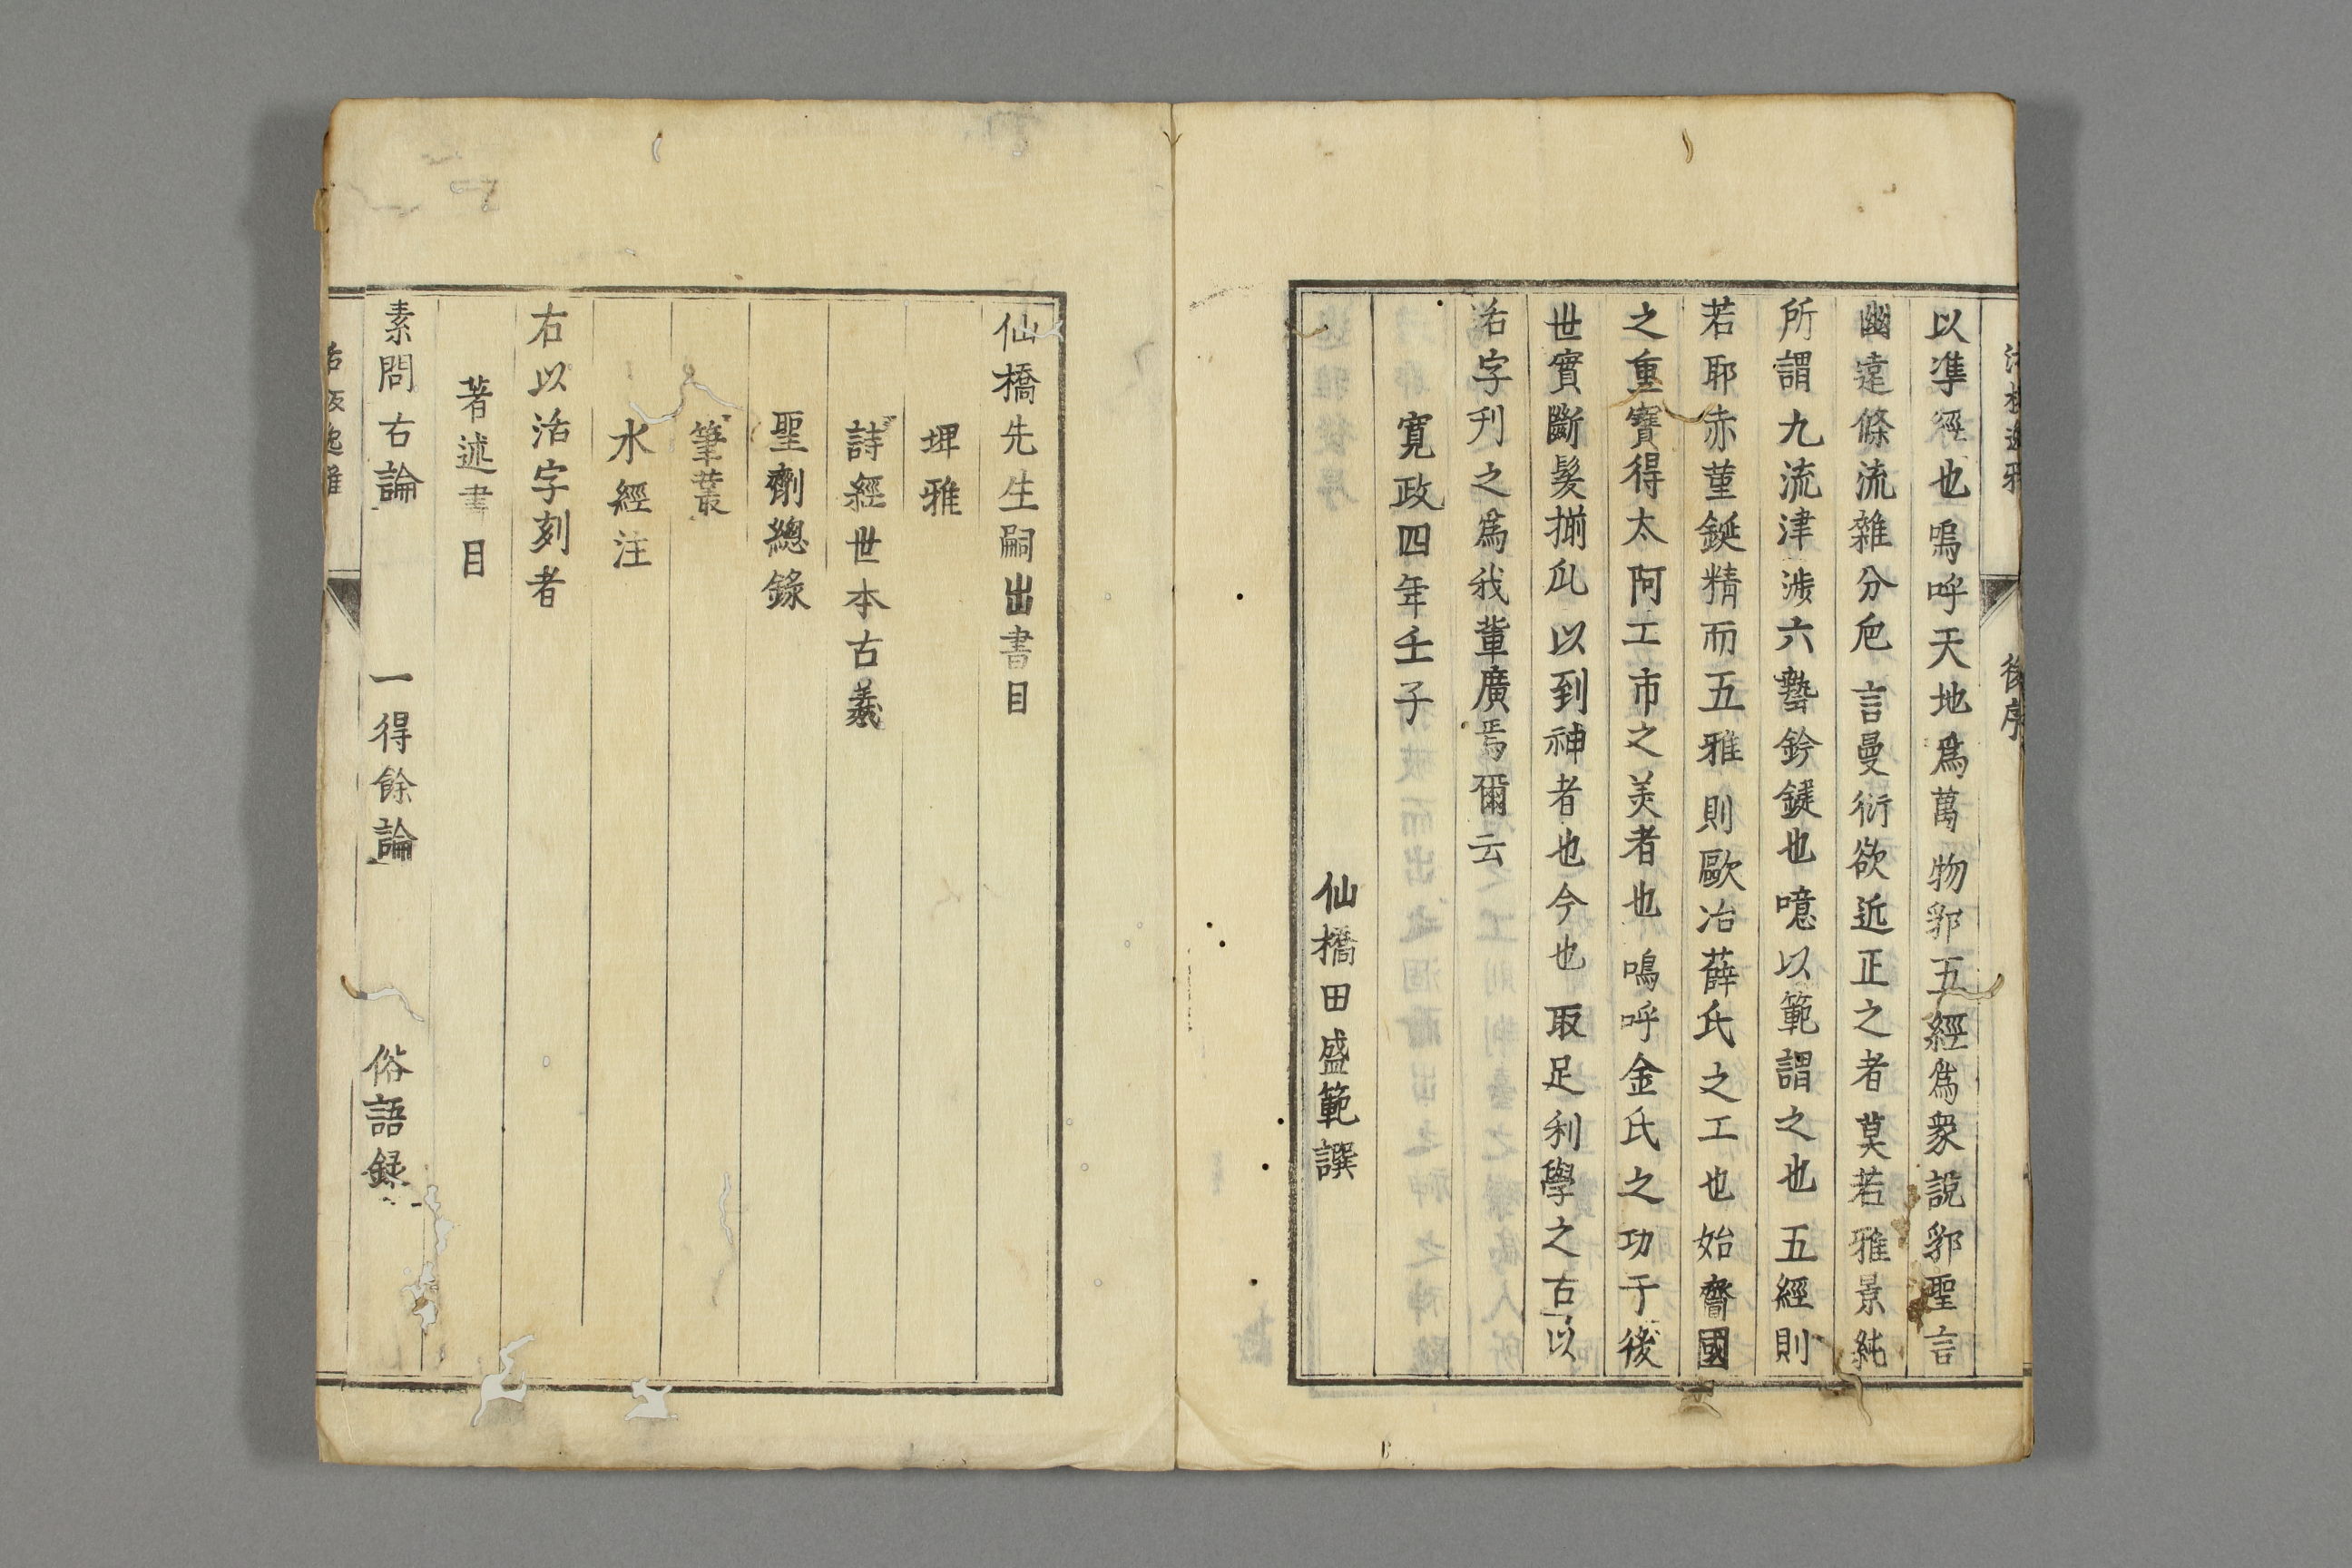 活板逸雅 後序
以準徑也嗚呼天地爲萬物郛五經爲衆說郛聖言
幽遠條流雜分卮言曼衍欲近正之者莫若雅景純
所謂九流津涉六藝鈐鍵也噫以範謂之也五經則
若耶赤菫鋋精而五雅則歐冶薛氏之工也始齎國
之重寶得太阿工市之美者也嗚呼金氏之功于後
世實斷髮揃爪以到神者也今也取足利學之古以
活字刋之爲我輩廣焉爾云
寛政四年壬子
仙橋田盛範譔
仙橋先生嗣出書目
埤雅
詩經世本古義
聖劑總錄
筆叢
水經注
右以活字刻者
著述書目
素問右論 一得餘論 俗語録
活板逸雅